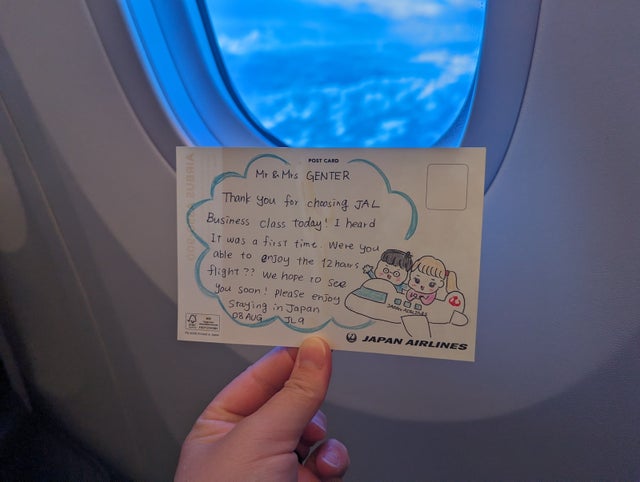 POST CARD
Mr & Mrs GENTER
Thank you for choosing JAL
Business class today! I heard
It was a first time. Were you
able to enjoy the 12hours
flight?? We hope to see
you soon! Please enjoy
Staying in Japan
08 AUG JL9
JAPAN AIRLINES
JAPAN AIRLINES